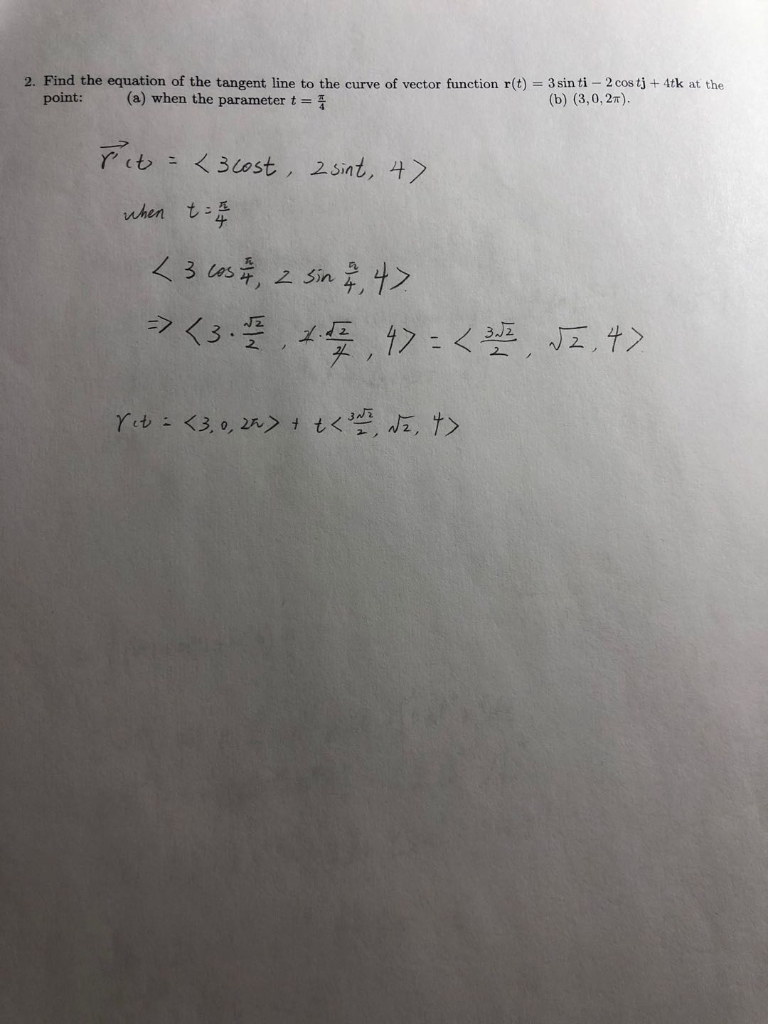 2. Find the equation of the tangent line to the curve of vector function r(t) = 3 sin ti − 2 cos tj + 4tk at the
point: (a) when the parameter t = π/4 (b) (3, 0, 2π).
r⃗'(t) = < 3 cost, 2 sint, 4 >
when t = π/4
< 3 cos π/4, 2 sin π/4, 4 >
=> < 3 · √2/2, 2 · √2/2, 4 > = < 3√2/2, √2, 4 >
r(t) = < 3, 0, 2π > + t < 3√2/2, √2, 4 >